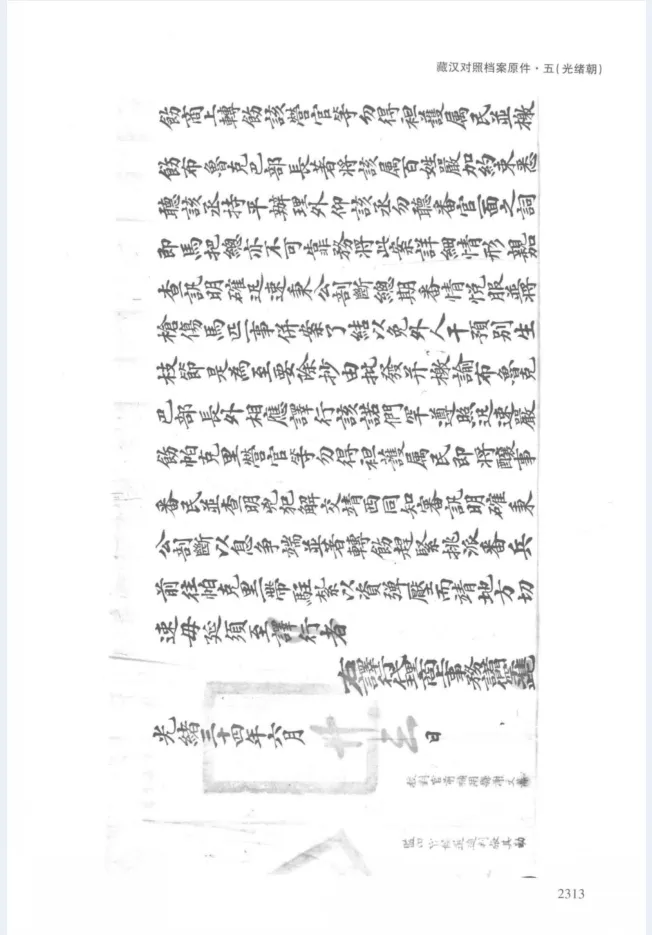 藏汉对照档案原件·五(光绪朝)
飭商上轉飭該營官等勿得袒護属民並檄
飭布魯克巴部長著將該属百姓嚴加約束悉
聽該丞持平辦理外仰該丞勿聽番官一面之詞
即馬把總亦不可靠務將此案詳細情形親加
查訊明確迅速秉公剖斷總期番情悅服並將
槍傷馬匹一事併案了結以免外人干預別生
枝節是為至要除抄由批發并檄諭布魯克
巴部長外相應譯行該諾們罕遵照迅速嚴
飭帕克里營官等勿得袒護属民即將釀事
番民並查明兇犯解交靖西同知審訊明確秉
公剖斷以息爭端並著轉飭趕緊挑派番兵
前往帕克里一帶駐紮以資彈壓而靖地方切
速毋延須至譯行者
右譯行代理商上事務
光緒三十四年六月廿三日
2313